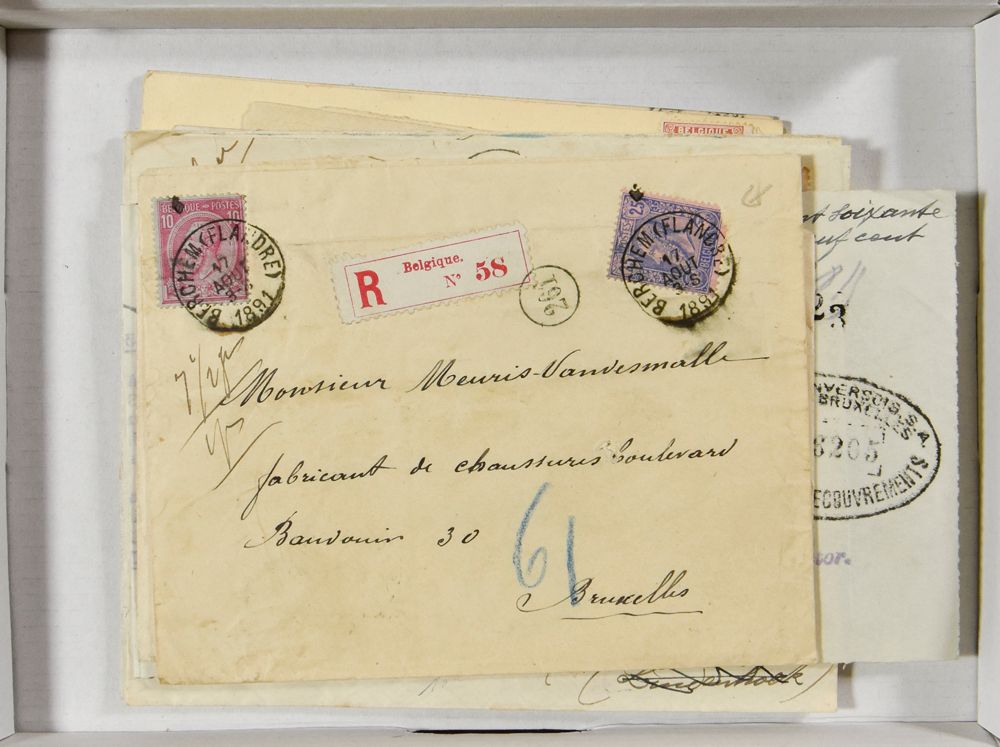 BELGIQUE
BELGIQUE POSTES
10 10
BERCHEM (FLANDRE)
17
AOUT
1891
R
Belgique.
N° 58
25
BERCHEM (FLANDRE)
17
AOUT
1891
soixante
cent
23
Monsieur Meuris-Vandesmalle
fabricant de chaussures Boulevard
Baudouin 30
61
Bruxelles
ANVERSOIS S.A.
BRUXELLES
8205
ECOUVREMENTS
tor.